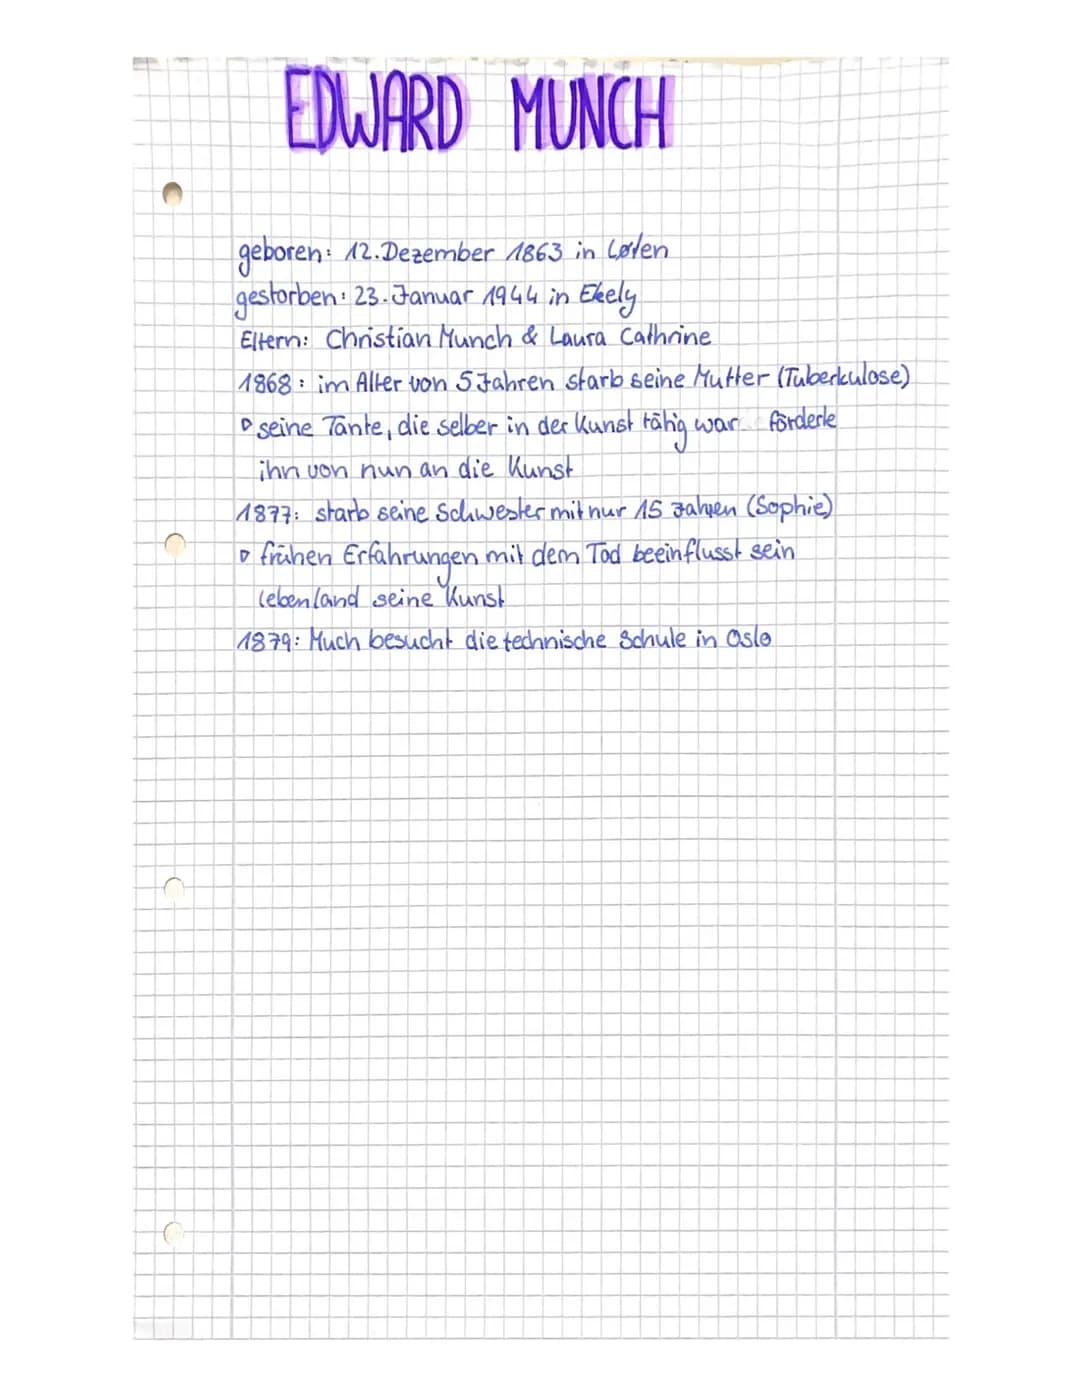 EDWARD MUNCH
geboren: 12. Dezember 1863 in Løten
gestorben: 23. Januar 1944 in Ekely
Eltern: Christian Munch & Laura Cathrine
1868: im Alter von 5 Jahren starb seine Mutter (Tuberkulose)
▹ seine Tante, die selber in der Kunst tätig war förderte
ihn von nun an die Kunst
1877: starb seine Schwester mit nur 15 Jahren (Sophie)
▹ frühen Erfahrungen mit dem Tod beeinflusst sein
Leben/and seine Kunst
1879: Much besucht die technische Schule in Oslo